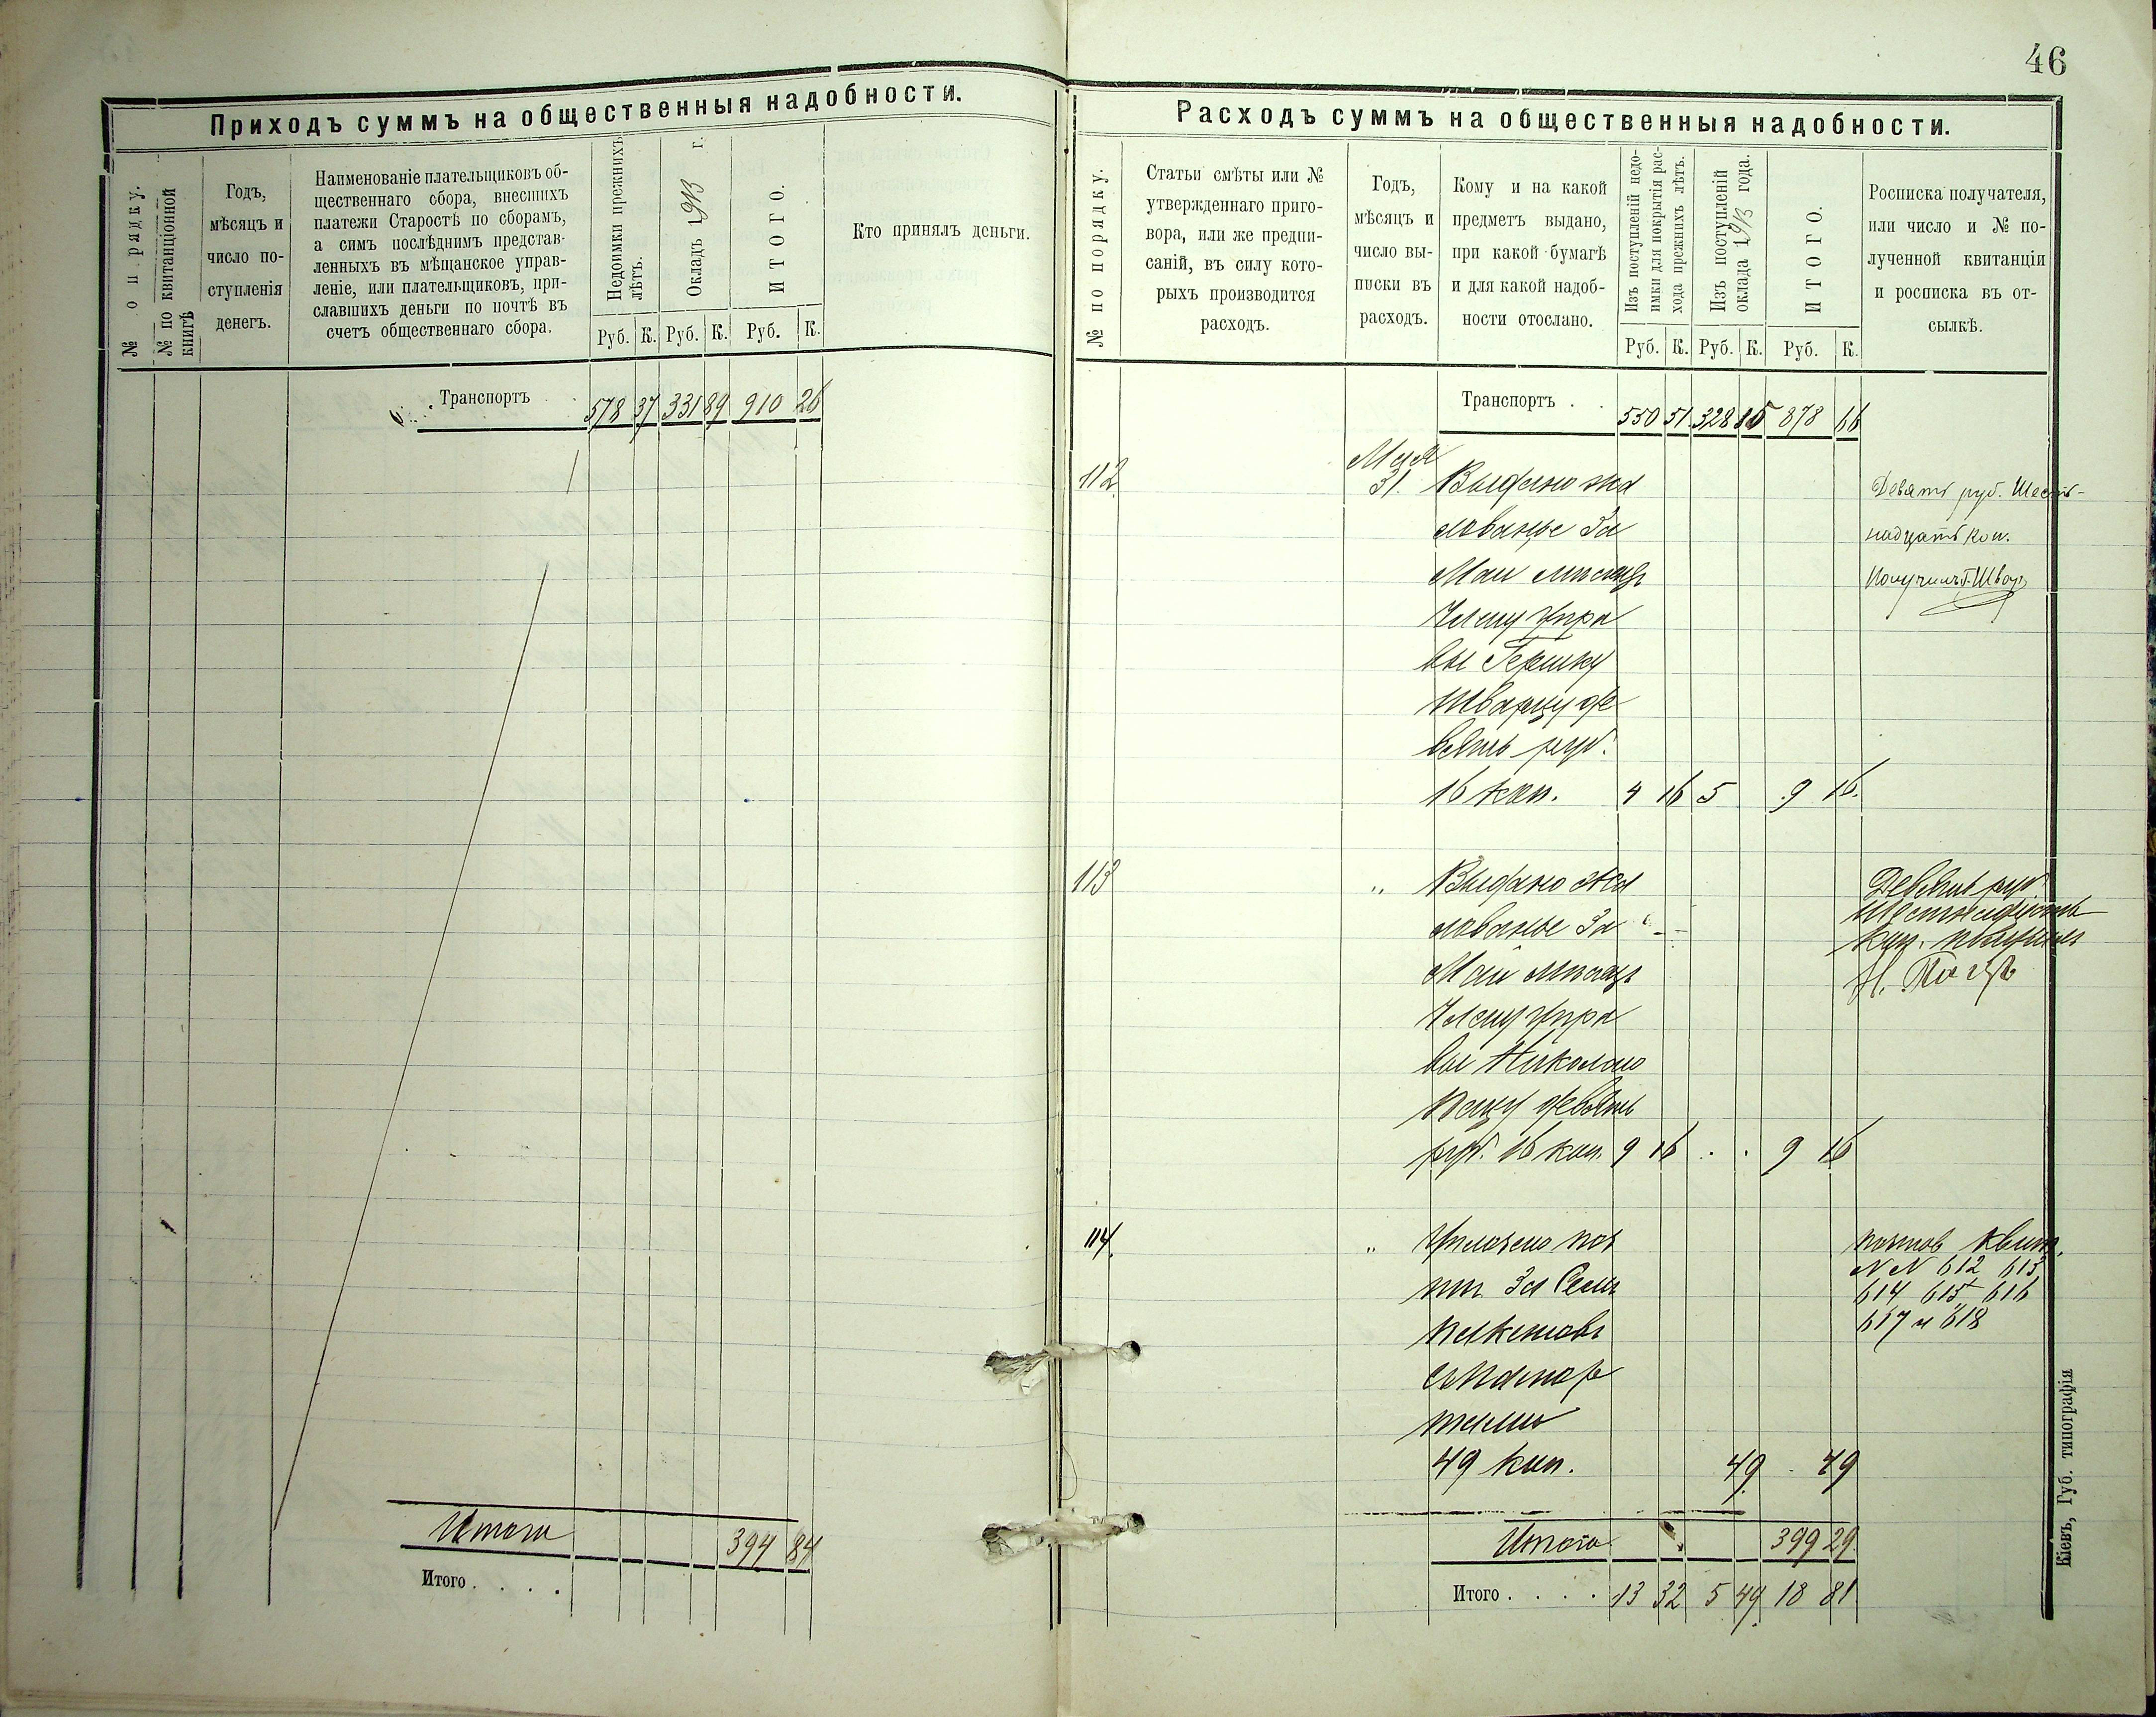 46
Приходъ суммъ на общественныя надобности.
№ по рядку.
№ по квитанціонной книгѣ
Годъ,
мѣсяцъ и
число по-
ступленія
денегъ.
Наименованіе плательщиковъ об-
щественнаго сбора, внесшихъ
платежи Старостѣ по сборамъ,
а симъ послѣднимъ представ-
ленныхъ въ мѣщанское управ-
леніе, или плательщиковъ, при-
славшихъ деньги по почтѣ въ
счетъ общественнаго сбора.
Недоимки прежнихъ
лѣтъ.
Окладъ 1913 г.
ИТОГО.
Руб. К. Руб. К. Руб. К.
Кто принялъ деньги.
Транспортъ 578 37 331 89 910 26
Итого 394 84
Итого . . . .
Расходъ суммъ на общественныя надобности.
№ по порядку.
Статьи смѣты или №
утвержденнаго приго-
вора, или же предпи-
саній, въ силу кото-
рыхъ производится
расходъ.
Годъ,
мѣсяцъ и
число вы-
писки въ
расходъ.
Кому и на какой
предметъ выдано,
при какой бумагѣ
и для какой надоб-
ности отослано.
Изъ поступленій недо-
имки для покрытія рас-
хода прежнихъ лѣтъ.
Изъ поступленій
оклада 1913 года.
ИТОГО.
Руб. К. Руб. К. Руб. К.
Росписка получателя,
или число и № по-
лученной квитанціи
и росписка въ от-
сылкѣ.
Транспортъ . . 550 51 328 15 878 66
112. Мая
31. Выдано жа
лованье За
Май мѣсяцъ
Члену Упра
вы Гершку
Шварцу де
вять руб.
16 коп. 4 16 5 9 16.
Девять руб. Шест-
надцать коп.
Получилъ Г. Шварцъ
113 " Выдано жа
лованье За
Май мѣсяцъ
Члену Упра
вы Николаю
Пацу девять
руб. 16 коп. 9 16 . . 9 16
Девять руб.
Шестнадцать
коп. получилъ
Н. Пацъ
114. " Уплочено поч
тѣ За Семь
пакетовъ
съ паспор
тами
49 коп. 49 . 49
почтов квит.
N N 612 613
614 615 616
617 и 618
Итого 399 29.
Итого . . . . 13 32 5 49 18 81
Кіевъ, Губ. типографія